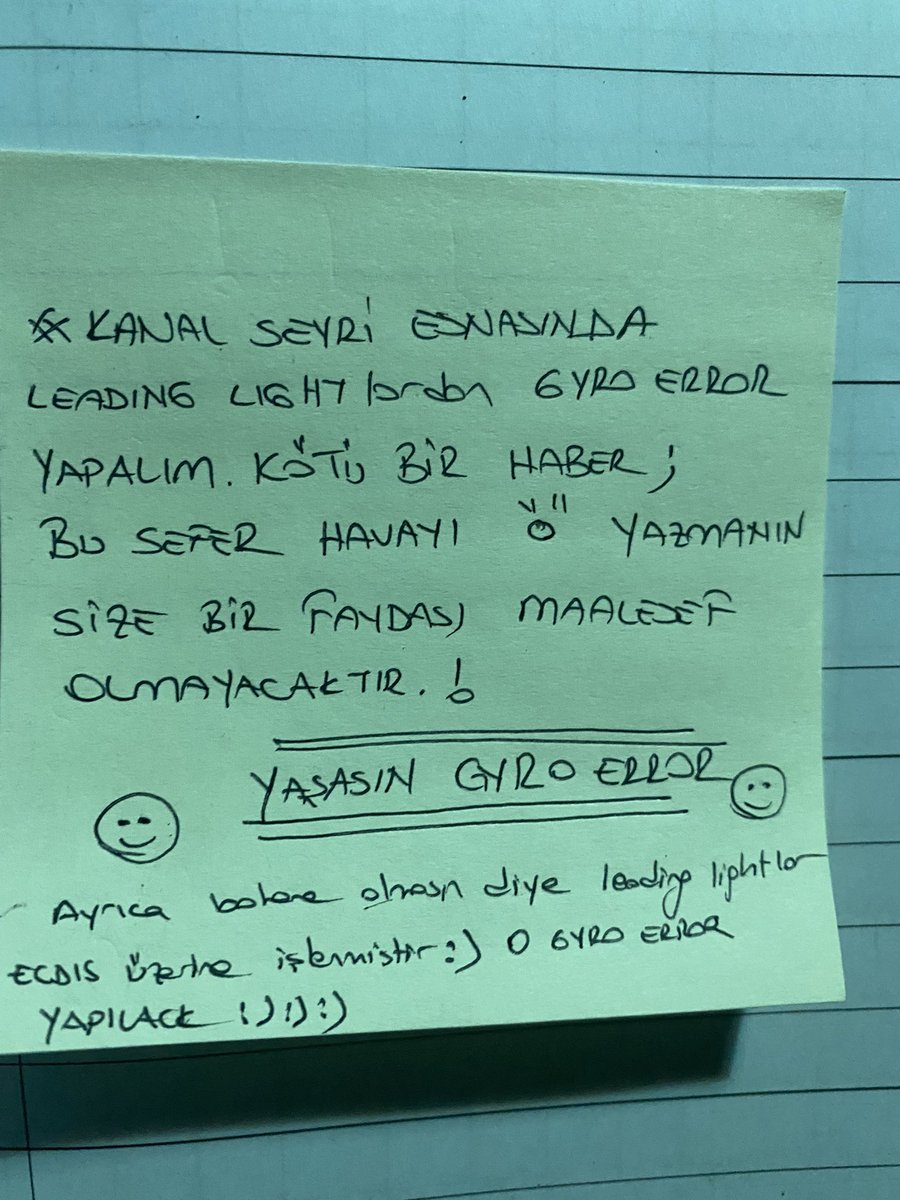 * KANAL SEYRİ ESNASINDA
LEADING LIGHTlardan GYRO ERROR
YAPALIM. KÖTÜ BİR HABER;
BU SEFER HAVAYI YAZMANIN
SİZE BİR FAYDASI MAALESEF
OLMAYACAKTIR. !
YAŞASIN GYRO ERROR
Ayrıca bahane olmasın diye leading lightlar
ECDIS üzerine işlenmiştir :) O GYRO ERROR
YAPILACK :) :) :)